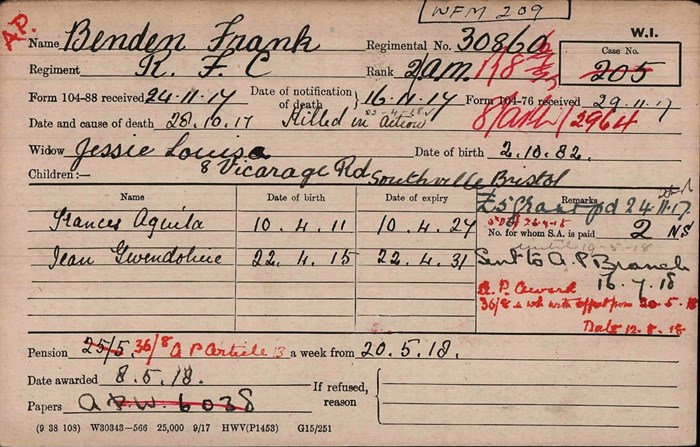 WFM 209
A.P.
W.I.
Name Benden Frank Regimental No. 30860 Case No.
Regiment R. F. C Rank 2 a.m. 205
Form 104-88 received 24-11-17 Date of notification of death 16-11-17 Form 104-76 received 29.11.17
Date and cause of death 28.10.17 Killed in Action 2964
Widow Jessie Louisa Date of birth 2.10.82.
Children:— 8 Vicarage Rd Southville Bristol
Name Date of birth Date of expiry Remarks
£5 Grant pd 24-11-17
Frances Aquila 10.4.11 10.4.27 No. for whom S.A. is paid 2 NS
Jean Gwendoline 22.4.15 22.4.31 Sent to A.P Branch
16.7.18
A.P. Award
36/8 a wk with effect from 20-5-18
Date 12.8.18.
Pension 25/5. 36/8 A P Article 13 a week from 20.5.18.
Date awarded 8.5.18. If refused, reason
Papers A.P.W. 6038
(9 38 108) W30343—566 25,000 9/17 HWV(P1453) G15/251